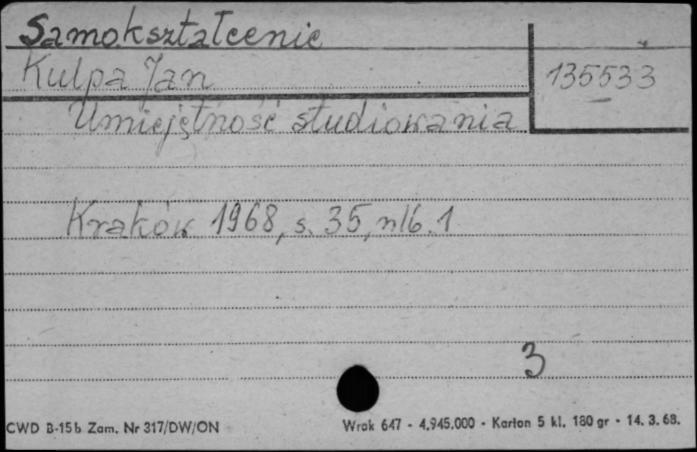 Samokształcenie
Kulpa Jan
135533
Umiejętność studiowania
Kraków 1968, s. 35, nlb. 1
3
CWD B-15b Zam. Nr 317/DW/ON
Wrok 647 - 4.945.000 - Karton 5 kl. 180 gr - 14. 3. 68.